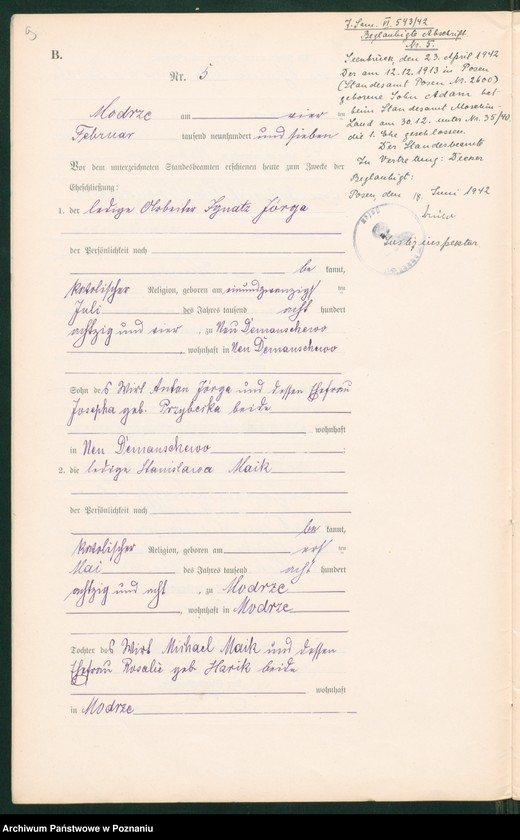 B.
Nr. 5
Modrze am vier ten
Februar tausend neunhundert und sieben
Vor dem unterzeichneten Standesbeamten erschienen heute zum Zwecke der
Eheschließung:
1. der ledige Arbeiter Ignatz Jörga
der Persönlichkeit nach
be kannt,
katolischer Religion, geboren am einundzwanzigs ten
Juli des Jahres tausend acht hundert
achtzig und vier, zu Neu Demanschewo
wohnhaft in Neu Demanschewo
Sohn des Wirt Anton Jörga und dessen Ehefrau
Josepha geb. beide
wohnhaft
in Neu Demanschewo
2. die ledige Stanislawa Maik
der Persönlichkeit nach
be kannt,
katolischer Religion, geboren am ers ten
Mai des Jahres tausend acht hundert
achtzig und acht, zu Modrze
wohnhaft in Modrze
Tochter des Wirt Michael Maik und dessen
Ehefrau Rosalie geb Harik beide
wohnhaft
in Modrze
J. Sam. VI. 543/42
Beglaubigte Abschrift
Nr. 5.
den 23. April 1942
Der am 12.12.1913 in Posen
(Standesamt Posen Nr. 2600)
geborene Sohn Adam hat
beim Standesamt Moschin-
Land am 30.12. unter Nr. 35/40
die 1. Ehe geschlossen.
Der Standesbeamte
In Vertretung: Decker
Beglaubigt:
Posen, den 18. Juni 1942
Justizinspektor
Archiwum Państwowe w Poznaniu